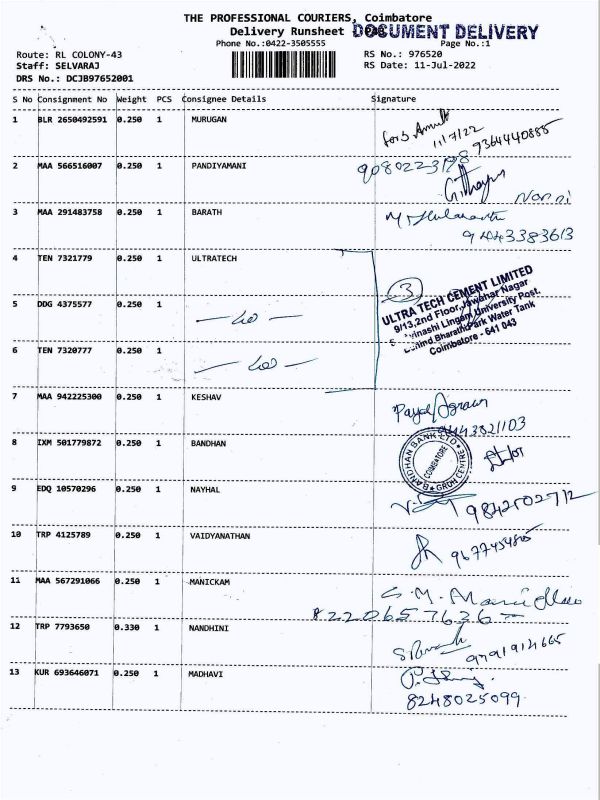 THE PROFESSIONAL COURIERS, Coimbatore
Delivery Runsheet
DOCUMENT DELIVERY
Phone No.:0422-3505555
Page No.:1
Route: RL COLONY-43
RS No.: 976520
Staff: SELVARAJ
RS Date: 11-Jul-2022
DRS No.: DCJB97652001
S No Consignment No Weight PCS Consignee Details Signature
1 BLR 2650492591 0.250 1 MURUGAN
11/7/22
9364440885
2 MAA 566516007 0.250 1 PANDIYAMANI
3 MAA 291483758 0.250 1 BARATH
4 TEN 7321779 0.250 1 ULTRATECH
3
ULTRA TECH CEMENT LIMITED
9/13,2nd Floor,Jawahar Nagar
Avinashi Lingam University Post,
Behind Bharathi Park Water Tank
Coimbatore - 641 043
5 DDG 4375577 0.250 1
6 TEN 7320777 0.250 1
7 MAA 942225300 0.250 1 KESHAV
8 IXM 501779872 0.250 1 BANDHAN
BANDHAN BANK LTD
COIMBATORE
9 EDQ 10570296 0.250 1 NAYHAL
9842502712
10 TRP 4125789 0.250 1 VAIDYANATHAN
11 MAA 567291066 0.250 1 MANICKAM
8220657636
12 TRP 7793650 0.330 1 NANDHINI
13 KUR 693646071 0.250 1 MADHAVI
8248025099